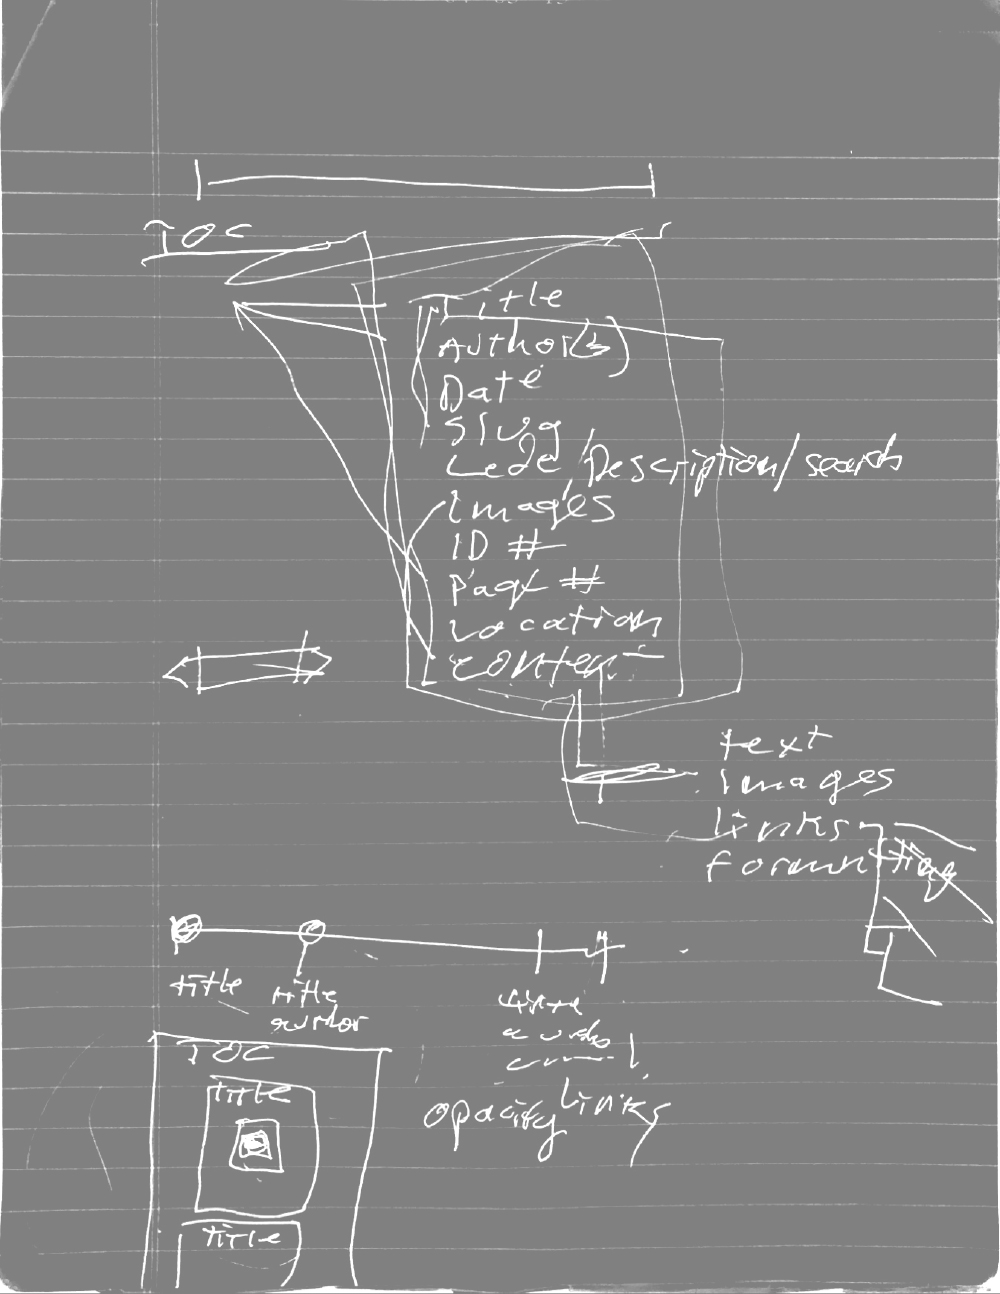 TOC
Title
Author(s)
Date
Slug
Lede/Description/search
Images
ID #
Page #
Location
Content
text
Images
links
formatting
title
title
author
title
links
opacity
TOC
title
title